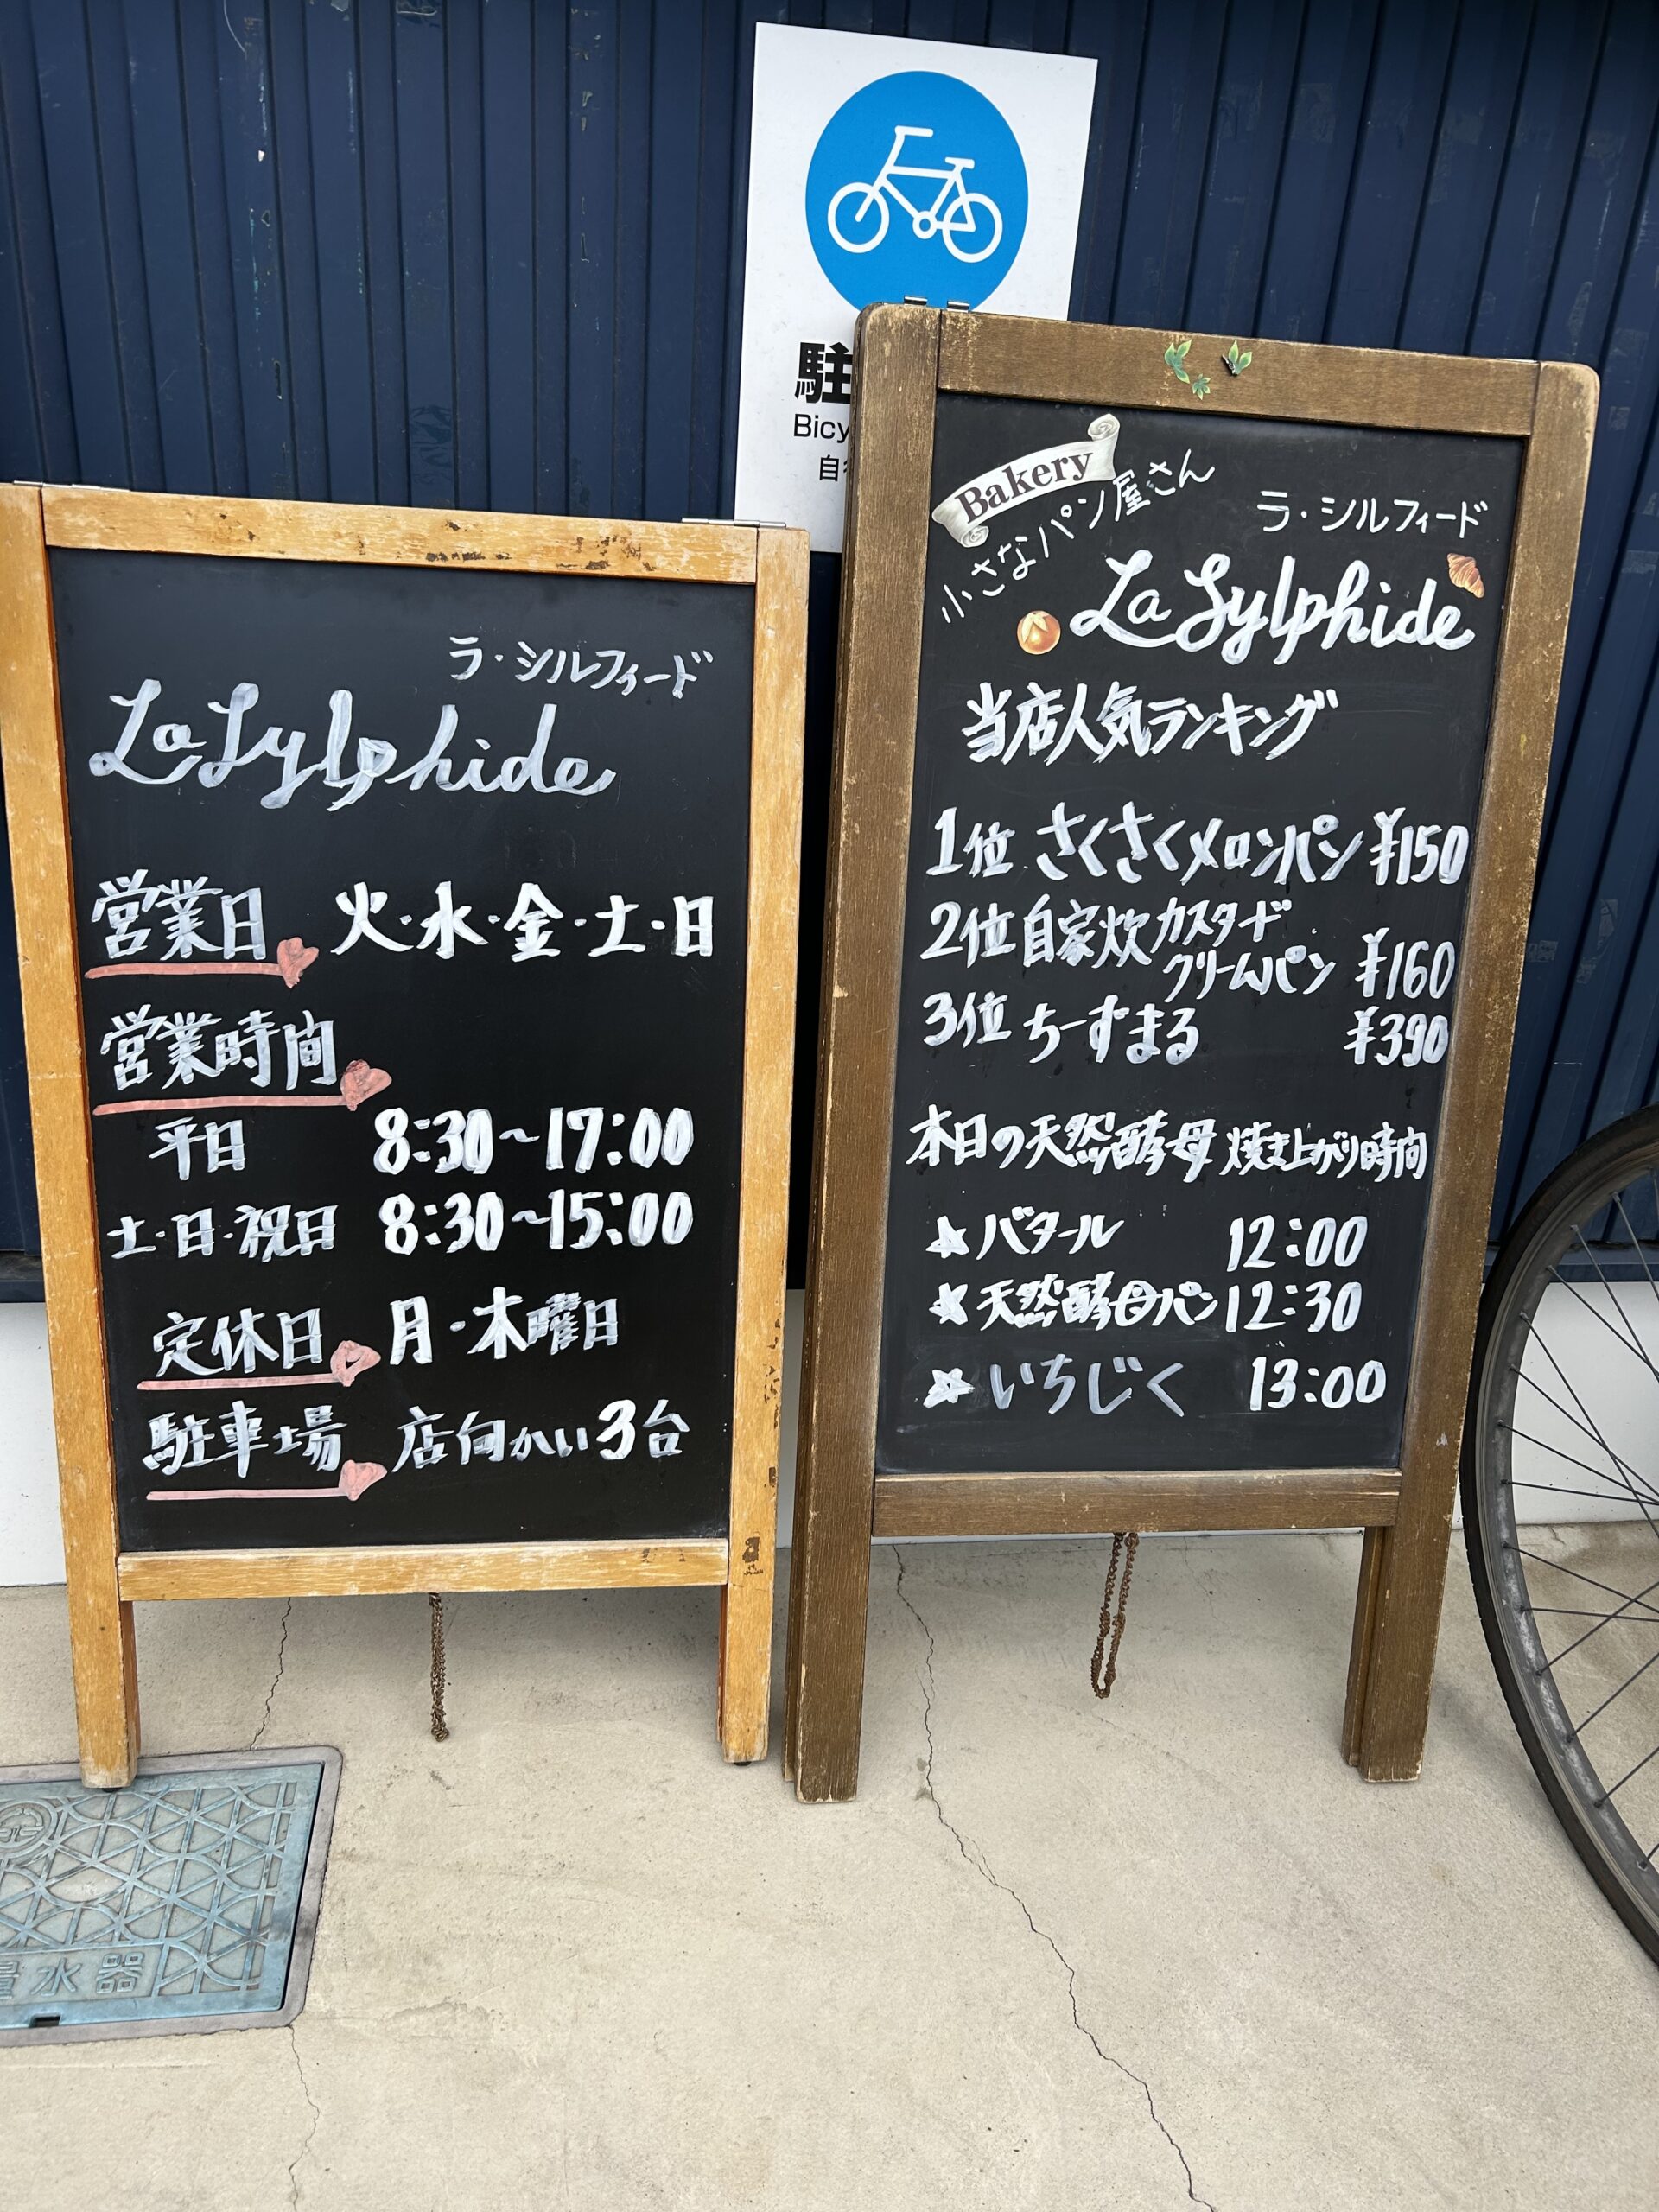 ラ・シルフィード
La Sylphide
営業日 火・水・金・土・日
営業時間
平日 8:30~17:00
土・日・祝日 8:30~15:00
定休日 月・木曜日
駐車場 店向かい3台
駐
Bicy
自
Bakery
小さなパン屋さん
ラ・シルフィード
La Sylphide
当店人気ランキング
1位 さくさくメロンパン ¥150
2位 自家炊カスタード
クリームパン ¥160
3位 ちーずまる ¥390
本日の天然酵母 焼き上がり時間
☆バタール 12:00
☆天然酵母パン 12:30
☆いちじく 13:00
量水器